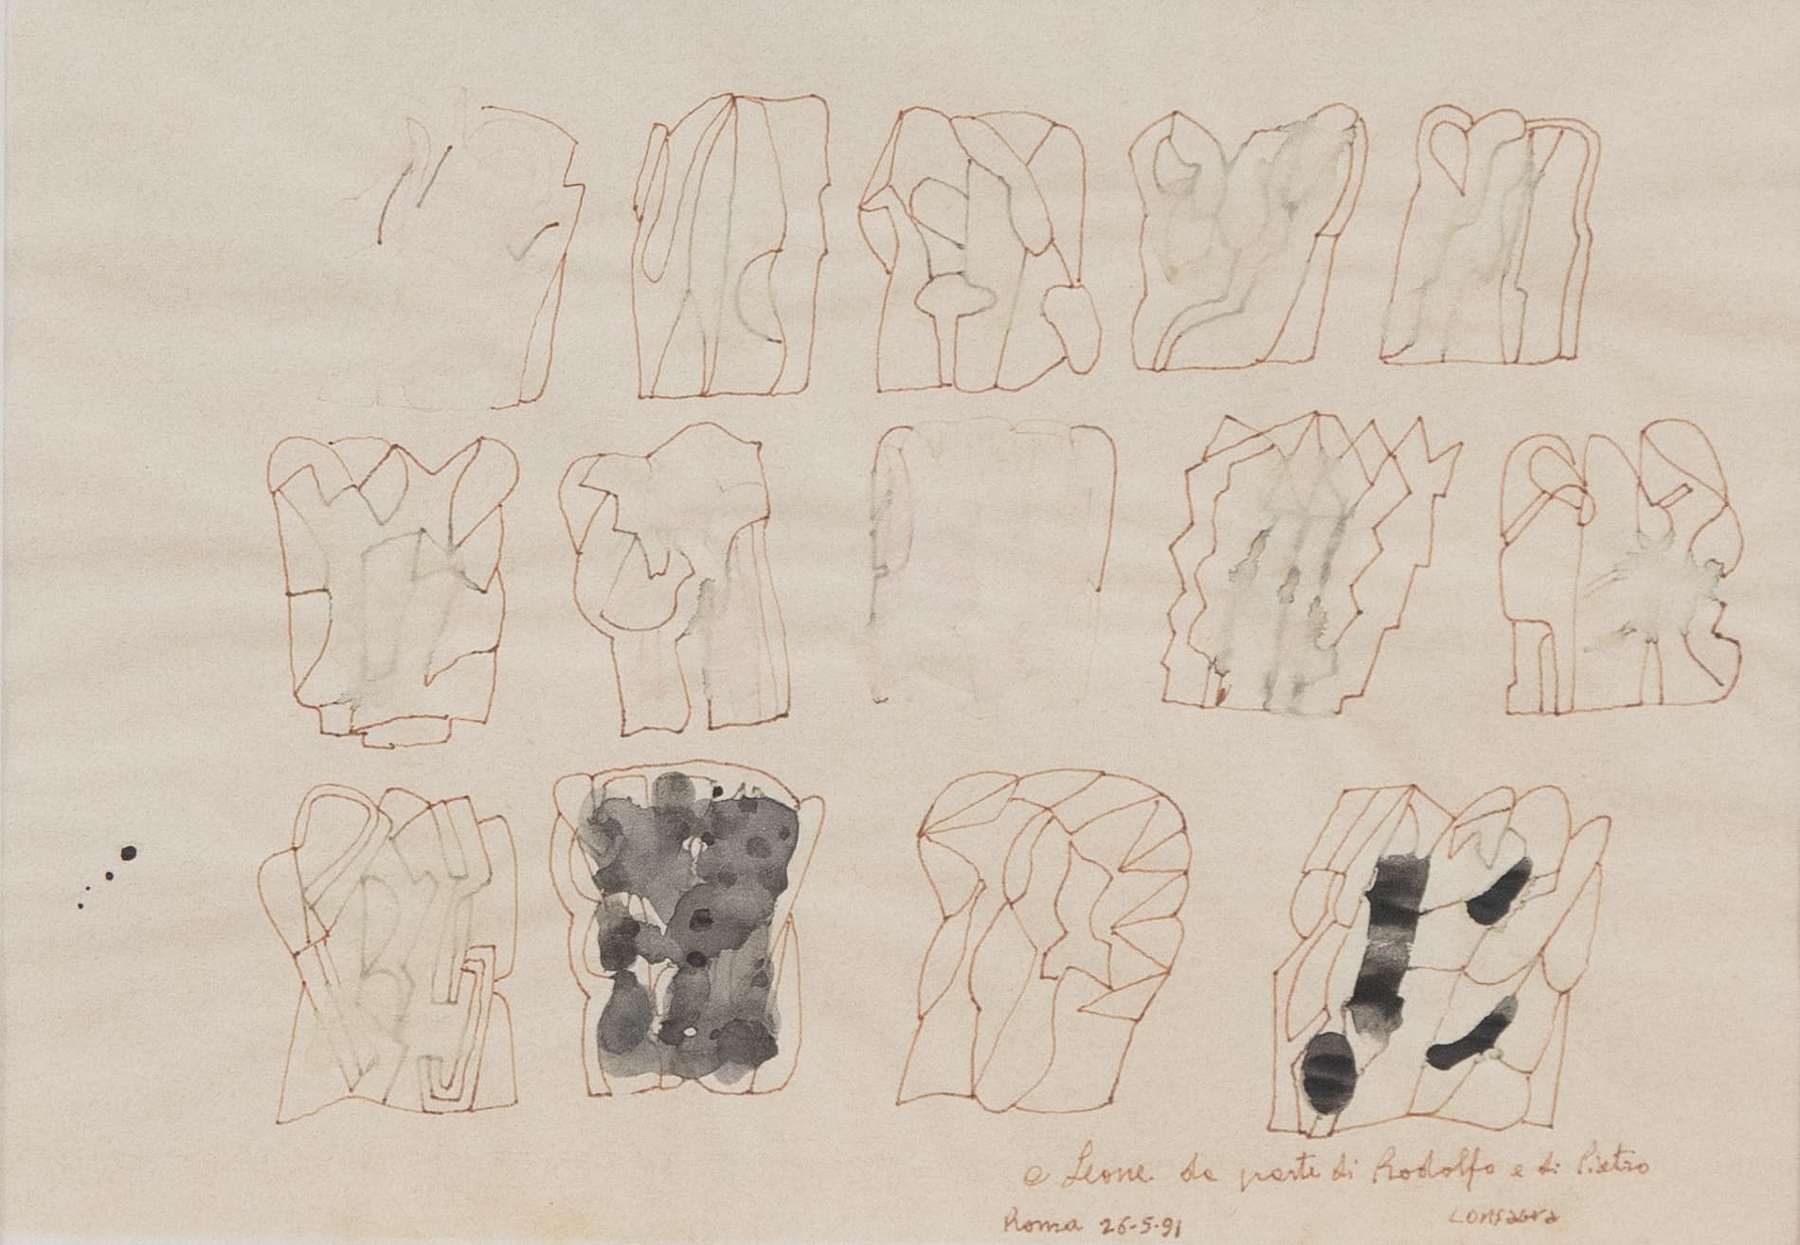 a Leone da parte di Rodolfo e di Pietro
Roma 26-5-91 Consagra